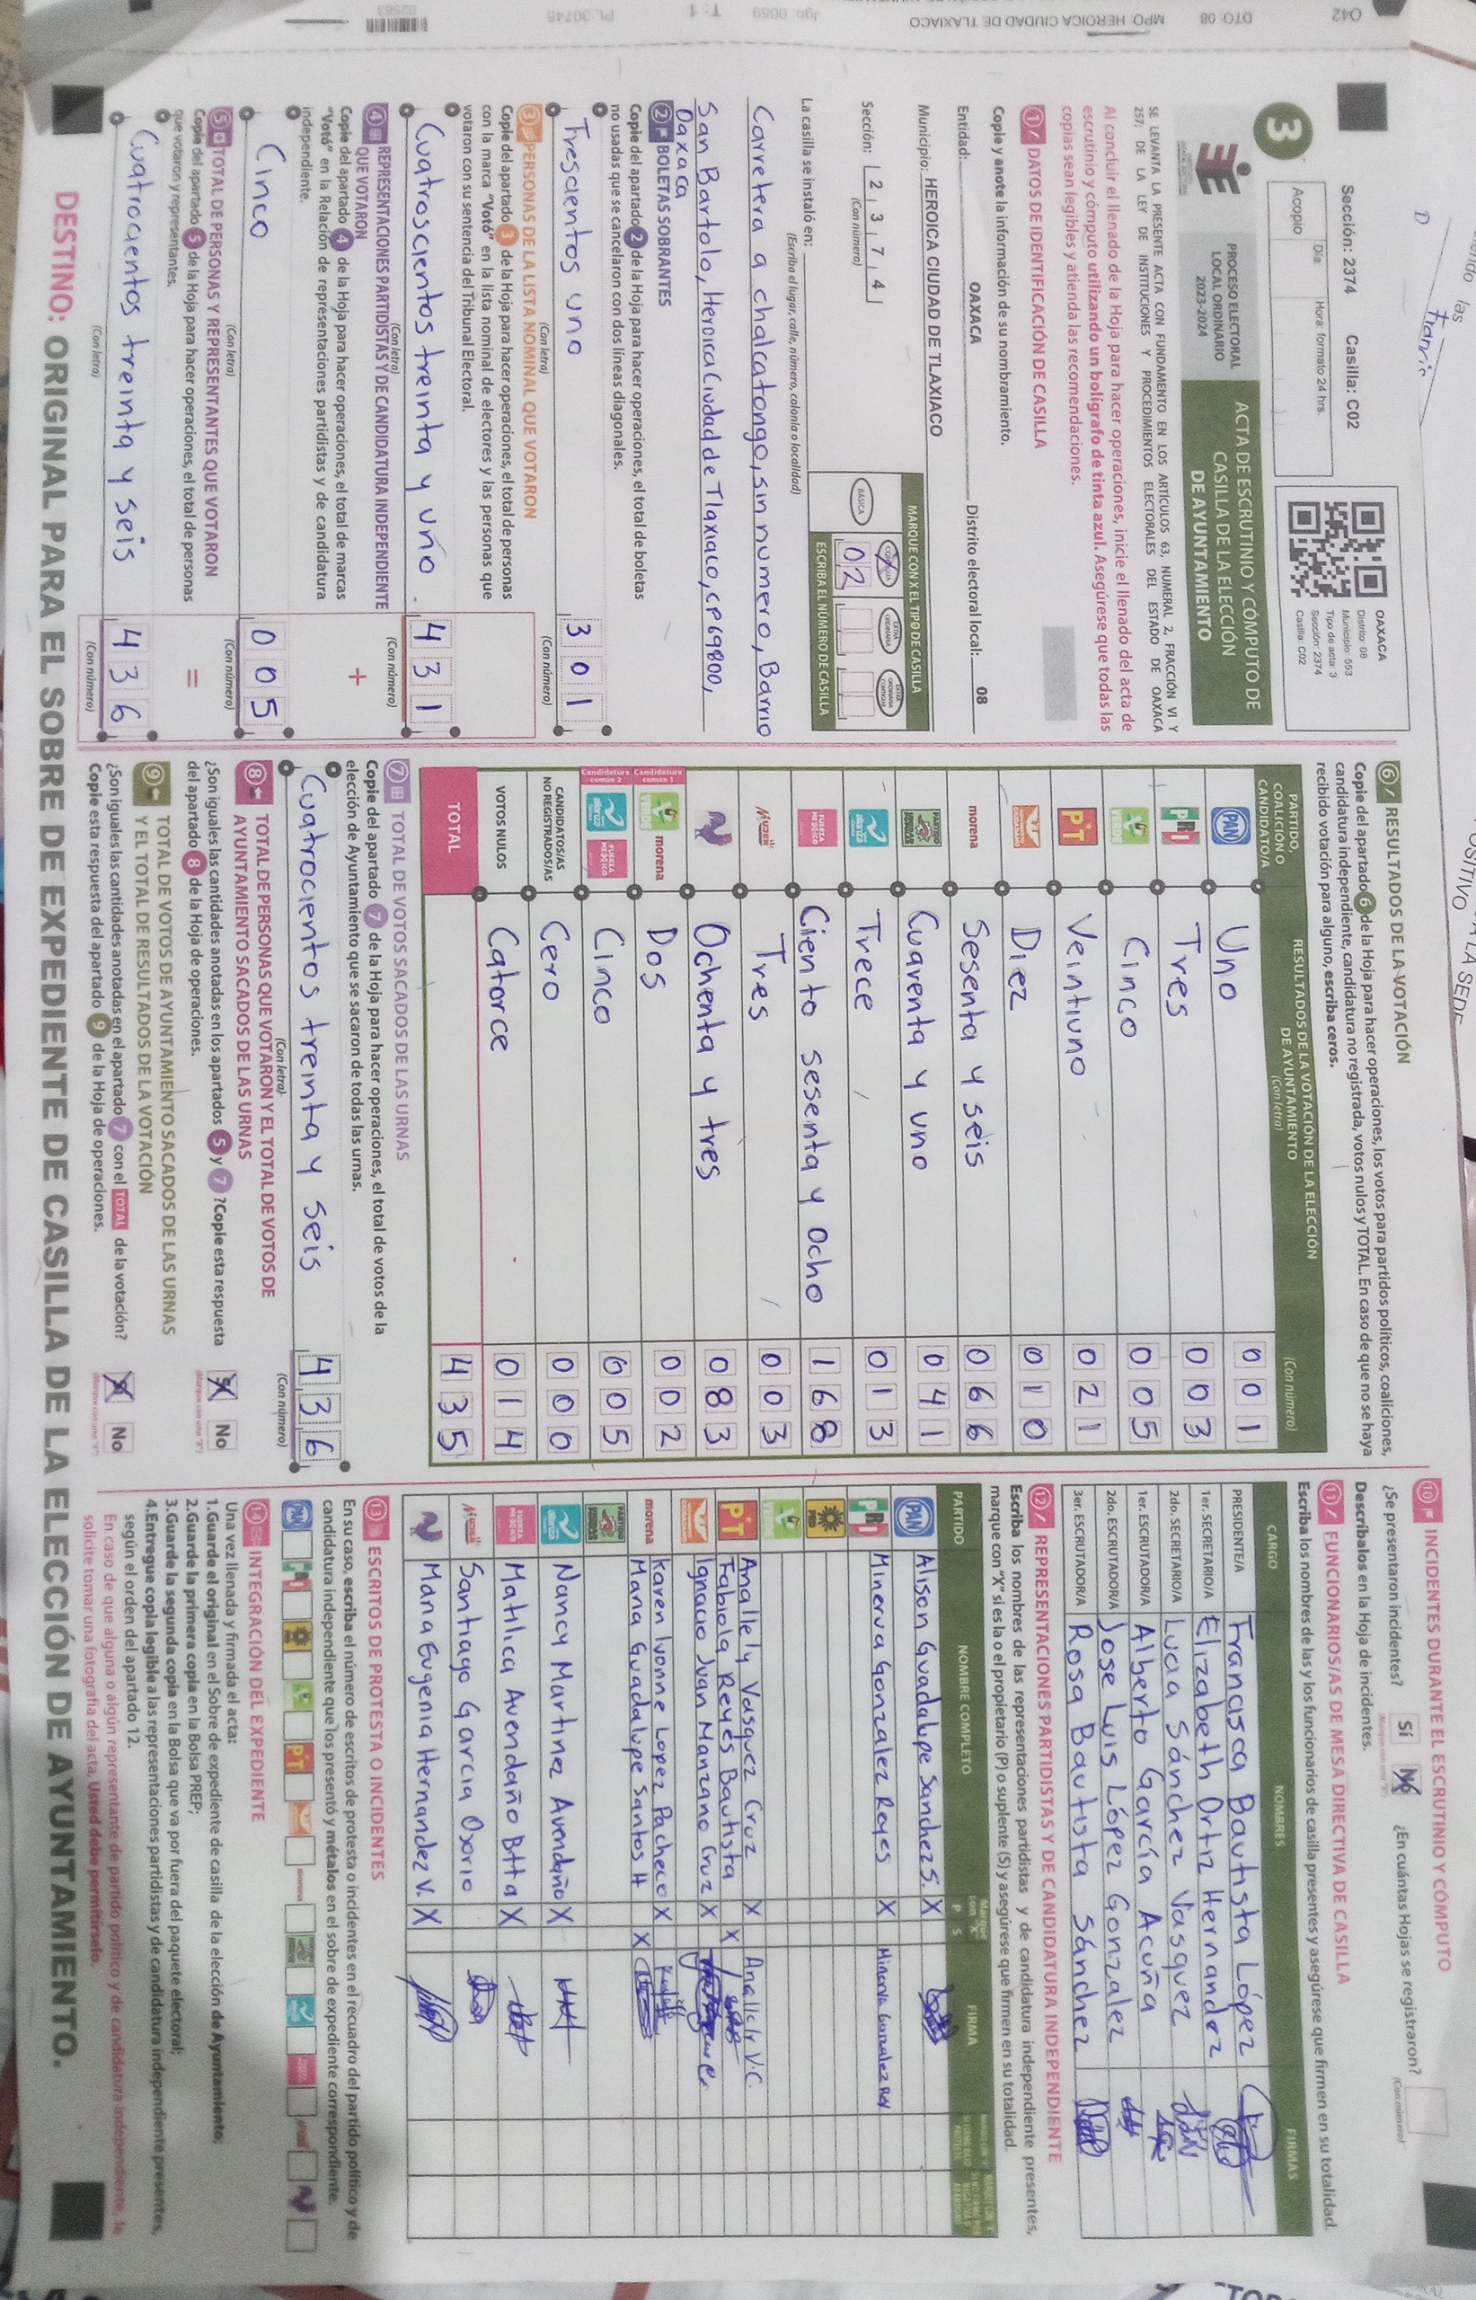 Sección: 2374 Casilla: C02
Acopio
Día Hora: formato 24 hrs.
OAXACA
Distrito: 08
Municipio: 553
Tipo de acta: 3
Sección: 2374
Casilla: C02
3
PROCESO ELECTORAL
LOCAL ORDINARIO
2023-2024
ACTA DE ESCRUTINIO Y CÓMPUTO DE
CASILLA DE LA ELECCIÓN
DE AYUNTAMIENTO
SE LEVANTA LA PRESENTE ACTA CON FUNDAMENTO EN LOS ARTÍCULOS 63, NUMERAL 2, FRACCIÓN VI Y
257; DE LA LEY DE INSTITUCIONES Y PROCEDIMIENTOS ELECTORALES DEL ESTADO DE OAXACA
Al concluir el llenado de la Hoja para hacer operaciones, inicie el llenado del acta de
escrutinio y cómputo utilizando un bolígrafo de tinta azul. Asegúrese que todas las
copias sean legibles y atienda las recomendaciones.
1 DATOS DE IDENTIFICACIÓN DE CASILLA
Copie y anote la información de su nombramiento.
Entidad: OAXACA Distrito electoral local: 08
Municipio: HEROICA CIUDAD DE TLAXIACO
Sección: 2 3 7 4
(Con número)
MARQUE CON X EL TIPO DE CASILLA
BÁSICA
02
ESCRIBA EL NÚMERO DE CASILLA
La casilla se instaló en:
(Escriba el lugar, calle, número, colonia o localidad)
Carretera a chalcatongo, sin numero, Barrio
San Bartolo, Heroica Ciudad de Tlaxiaco, CP 69800,
Oaxaca
2 BOLETAS SOBRANTES
Copie del apartado 2 de la Hoja para hacer operaciones, el total de boletas
no usadas que se cancelaron con dos líneas diagonales.
Trescientos uno 301
(Con letra) (Con número)
3 PERSONAS DE LA LISTA NOMINAL QUE VOTARON
Copie del apartado 3 de la Hoja para hacer operaciones, el total de personas
con la marca "Votó" en la lista nominal de electores y las personas que
votaron con su sentencia del Tribunal Electoral.
Cuatroscientos treinta y uno. 431
(Con letra) (Con número)
4 REPRESENTACIONES PARTIDISTAS Y DE CANDIDATURA INDEPENDIENTE
QUE VOTARON
Copie del apartado 4 de la Hoja para hacer operaciones, el total de marcas
"Votó" en la Relación de representaciones partidistas y de candidatura
independiente.
+
Cinco 005
(Con letra) (Con número)
5 TOTAL DE PERSONAS Y REPRESENTANTES QUE VOTARON
Copie del apartado 5 de la Hoja para hacer operaciones, el total de personas
que votaron y representantes.
=
Cuatrocientos treinta y seis 436
(Con letra) (Con número)
6 RESULTADOS DE LA VOTACIÓN
Copie del apartado 6 de la Hoja para hacer operaciones, los votos para partidos políticos, coaliciones,
candidatura independiente, candidatura no registrada, votos nulos y TOTAL. En caso de que no se haya
recibido votación para alguno, escriba ceros.
PARTIDO,
COALICIÓN O
CANDIDATO/A
RESULTADOS DE LA VOTACIÓN DE LA ELECCIÓN
DE AYUNTAMIENTO
(Con letra)
(Con número)
PAN Uno 001
PRI Tres 003
VERDE Cinco 005
PT Veintiuno 021
Diez 010
morena Sesenta y seis 066
Cuarenta y uno 041
Trece 013
FUERZA MÉXICO Ciento sesenta y Ocho 168
MUJER Tres 003
Ochenta y tres 083
Candidatura común 1 VERDE morena Dos 002
Candidatura común 2 alianza FUERZA MÉXICO Cinco 005
CANDIDATOS/AS
NO REGISTRADOS/AS Cero 000
VOTOS NULOS Catorce 014
TOTAL 435
7 TOTAL DE VOTOS SACADOS DE LAS URNAS
Copie del apartado 7 de la Hoja para hacer operaciones, el total de votos de la
elección de Ayuntamiento que se sacaron de todas las urnas.
Cuatrocientos treinta y seis 436
(Con letra) (Con número)
8 TOTAL DE PERSONAS QUE VOTARON Y EL TOTAL DE VOTOS DE
AYUNTAMIENTO SACADOS DE LAS URNAS
¿Son iguales las cantidades anotadas en los apartados 5 y 7? Cople esta respuesta
del apartado 8 de la Hoja de operaciones.
X No
9 TOTAL DE VOTOS DE AYUNTAMIENTO SACADOS DE LAS URNAS
Y EL TOTAL DE RESULTADOS DE LA VOTACIÓN
¿Son iguales las cantidades anotadas en el apartado 7 con el TOTAL de la votación?
Cople esta respuesta del apartado 9 de la Hoja de operaciones.
X No
10 INCIDENTES DURANTE EL ESCRUTINIO Y CÓMPUTO
¿Se presentaron incidentes? Sí No ¿En cuántas Hojas se registraron?
Descríbalos en la Hoja de incidentes.
(Con número)
11 FUNCIONARIOS/AS DE MESA DIRECTIVA DE CASILLA
Escriba los nombres de las y los funcionarios de casilla presentes y asegúrese que firmen en su totalidad.
CARGO NOMBRES FIRMAS
PRESIDENTE/A Francisca Bautista López
1er. SECRETARIO/A Elizabeth Ortiz Hernandez
2do. SECRETARIO/A Lucia Sánchez Vasquez
1er. ESCRUTADOR/A Alberto García Acuña
2do. ESCRUTADOR/A Jose Luis López Gonzalez
3er. ESCRUTADOR/A Rosa Bautista Sánchez
12 REPRESENTACIONES PARTIDISTAS Y DE CANDIDATURA INDEPENDIENTE
Escriba los nombres de las representaciones partidistas y de candidatura independiente presentes,
marque con "X" si es la o el propietario (P) o suplente (S) y asegúrese que firmen en su totalidad.
PARTIDO NOMBRE COMPLETO P S FIRMA
PAN Alison Guadalupe Sanchez S. X
PRI Minerva Gonzalez Reyes X
PRD
VERDE
PT Anallely Vasquez Cruz X Anallely V.C.
Fabiola Reyes Bautista X
Ignacio Juan Manzano Cruz X
morena Karen Ivonne Lopez Pacheco X
Maria Guadalupe Santos H X
Nancy Martinez Avendaño X
FUERZA MÉXICO Matilica Avendaño Btta X
MUJER Santiago Garcia Osorio
Maria Eugenia Hernandez V. X
13 ESCRITOS DE PROTESTA O INCIDENTES
En su caso, escriba el número de escritos de protesta o incidentes en el recuadro del partido político y de
candidatura independiente que los presentó y métalos en el sobre de expediente correspondiente.
14 INTEGRACIÓN DEL EXPEDIENTE
Una vez llenada y firmada el acta:
1.Guarde el original en el Sobre de expediente de casilla de la elección de Ayuntamiento;
2.Guarde la primera copia en la Bolsa PREP;
3.Guarde la segunda copia en la Bolsa que va por fuera del paquete electoral;
4.Entregue copia legible a las representaciones partidistas y de candidatura independiente presentes,
según el orden del apartado 12.
En caso de que alguna o algún representante de partido político y de candidatura independiente, le
solicite tomar una fotografía del acta, Usted debe permitírselo.
DESTINO: ORIGINAL PARA EL SOBRE DE EXPEDIENTE DE CASILLA DE LA ELECCIÓN DE AYUNTAMIENTO.
DTO: 08 MPO: HEROICA CIUDAD DE TLAXIACO